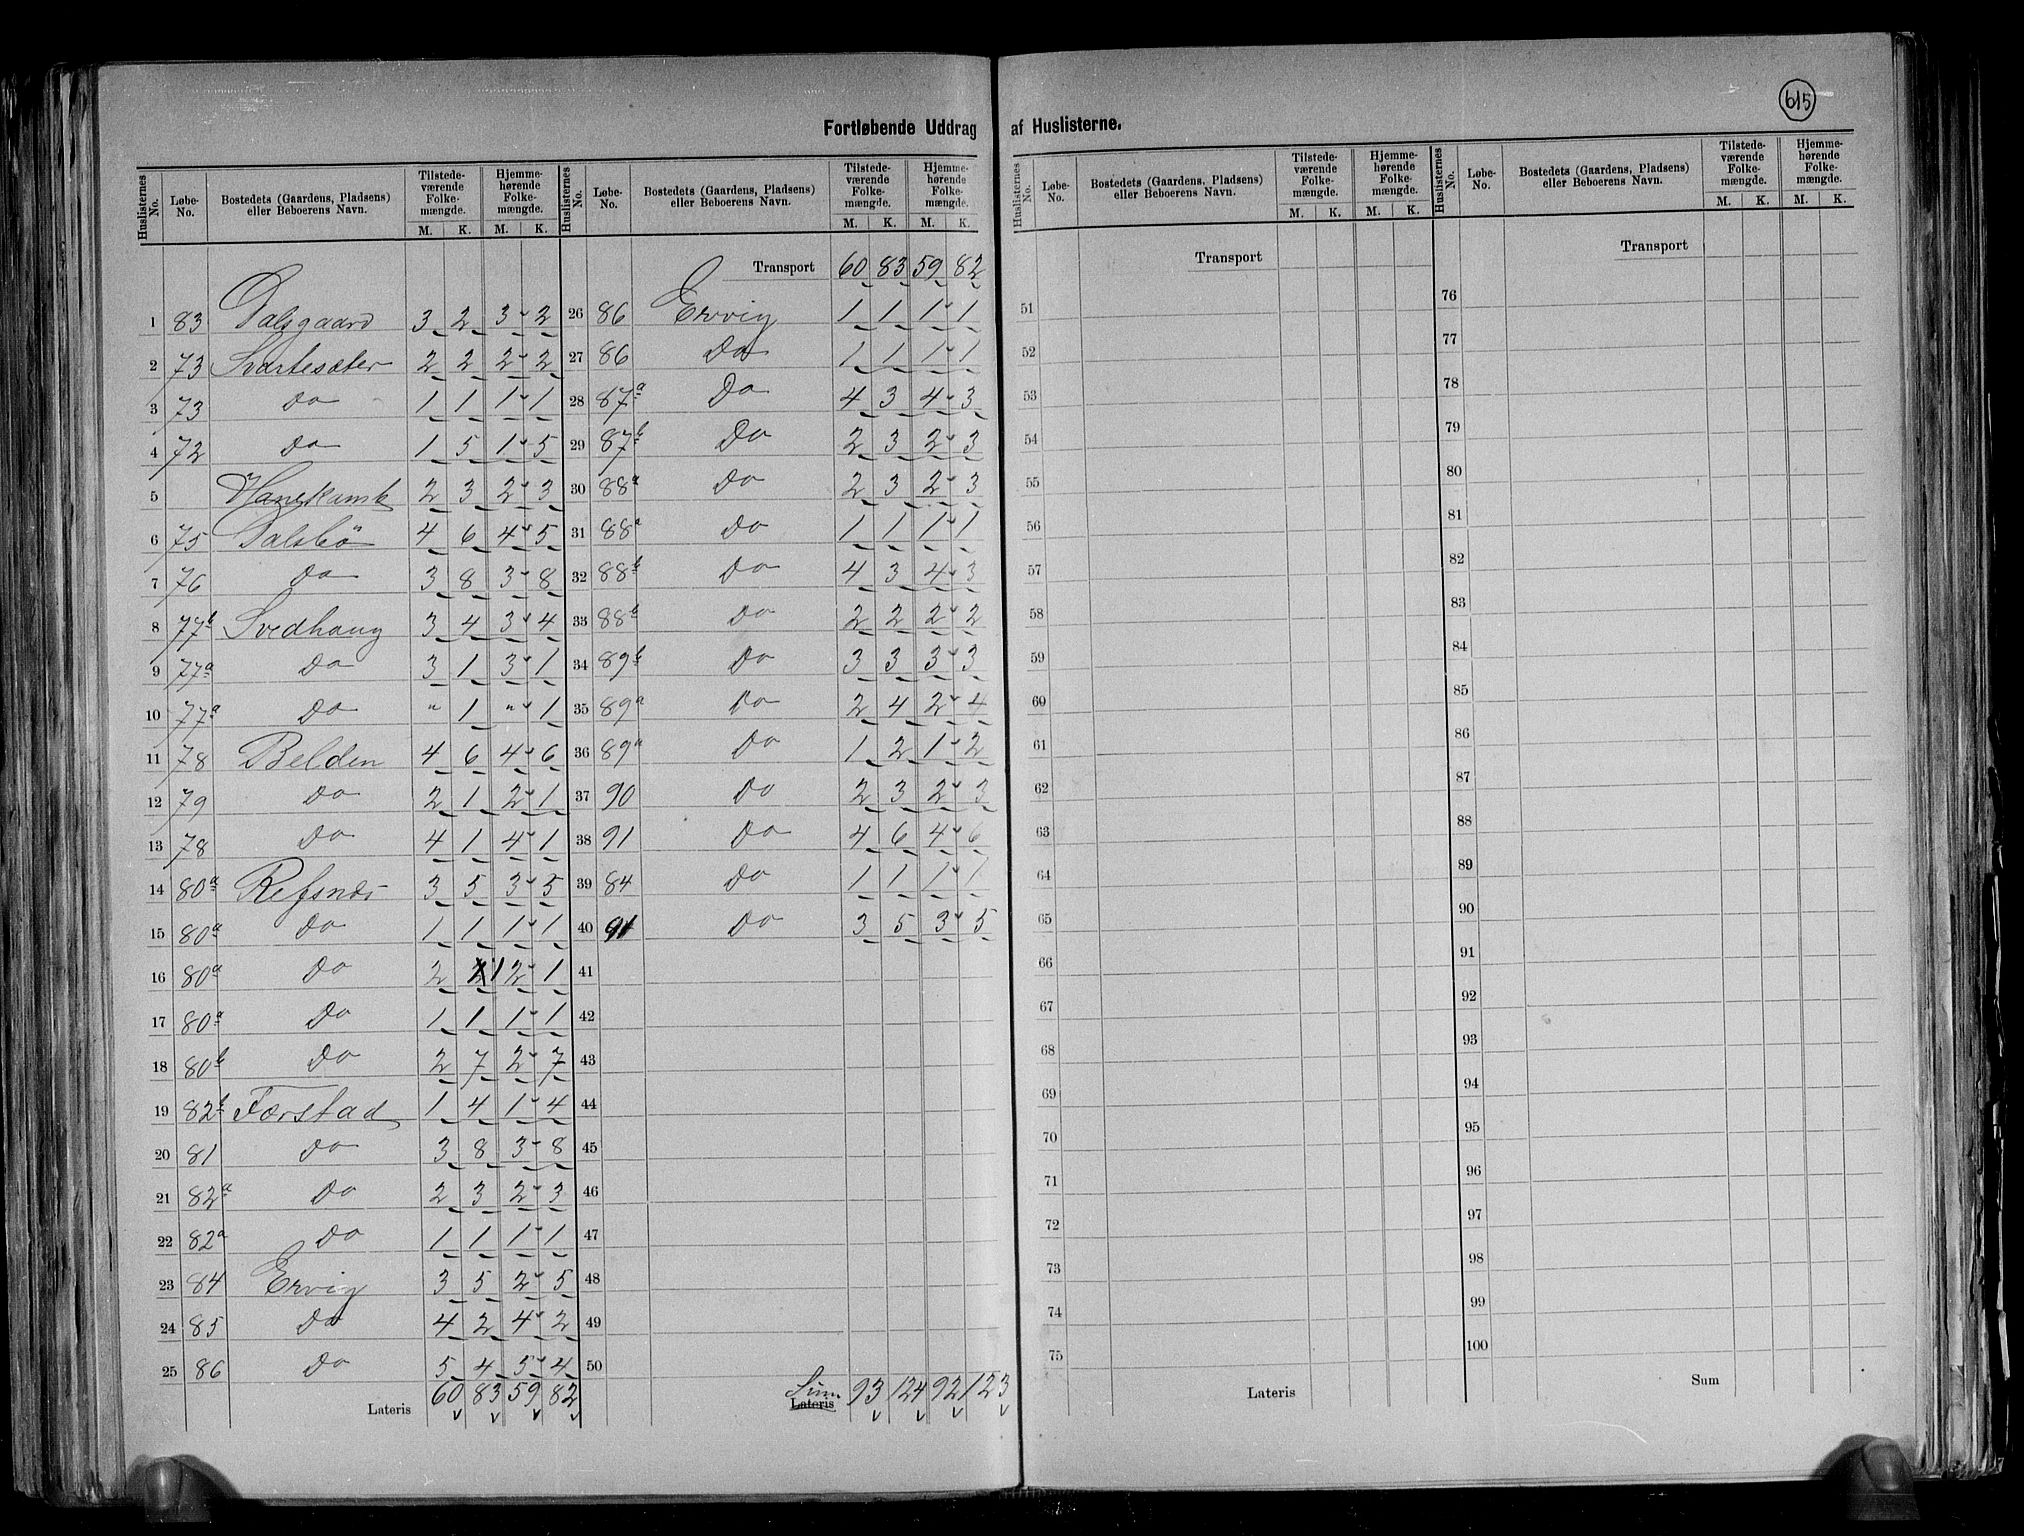 615
Fortløbende Uddrag af Huslisterne.
Huslisternes No. | Løbe-No. | Bostedets (Gaardens, Pladsens) eller Beboerens Navn. | Tilstedeværende Folkemængde. M. K. | Hjemmehørende Folkemængde. M. K.
1 83 Dalsgaard 3 2 3 2
2 73 Svartesæter 2 2 2 2
3 73 Do 1 1 1 1
4 72 Do 1 5 1 5
5 Hanekamb 2 3 2 3
6 75 Dalsbö 4 6 4 5
7 76 Do 3 8 3 8
8 77b Svedhaug 3 4 3 4
9 77a Do 3 1 3 1
10 77a Do " 1 " 1
11 78 Belden 4 6 4 6
12 79 Do 2 1 2 1
13 78 Do 4 1 4 1
14 80a Refsnæs 3 5 3 5
15 80a Do 1 1 1 1
16 80a Do 2 1 2 1
17 80a Do 1 1 1 1
18 80b Do 2 7 2 7
19 82b Færstad 1 4 1 4
20 81 Do 3 8 3 8
21 82a Do 2 3 2 3
22 82a Do 1 1 1 1
23 84 Ervig 3 5 2 5
24 85 Do 4 2 4 2
25 86 Do 5 4 5 4
Lateris 60 83 59 82
Huslisternes No. | Løbe-No. | Bostedets (Gaardens, Pladsens) eller Beboerens Navn. | Tilstedeværende Folkemængde. M. K. | Hjemmehørende Folkemængde. M. K.
Transport 60 83 59 82
26 86 Ervig 1 1 1 1
27 86 Do 1 1 1 1
28 87a Do 4 3 4 3
29 87b Do 2 3 2 3
30 88a Do 2 3 2 3
31 88a Do 1 1 1 1
32 88b Do 4 3 4 3
33 88b Do 2 2 2 2
34 89b Do 3 3 3 3
35 89a Do 2 4 2 4
36 89a Do 1 2 1 2
37 90 Do 2 3 2 3
38 91 Do 4 6 4 6
39 84 Do 1 1 1 1
40 91 Do 3 5 3 5
41
42
43
44
45
46
47
48
49
50
Sum Lateris 93 124 92 123
Huslisternes No. | Løbe-No. | Bostedets (Gaardens, Pladsens) eller Beboerens Navn. | Tilstedeværende Folkemængde. M. K. | Hjemmehørende Folkemængde. M. K.
Transport
51
52
53
54
55
56
57
58
59
60
61
62
63
64
65
66
67
68
69
70
71
72
73
74
75
Lateris
Huslisternes No. | Løbe-No. | Bostedets (Gaardens, Pladsens) eller Beboerens Navn. | Tilstedeværende Folkemængde. M. K. | Hjemmehørende Folkemængde. M. K.
Transport
76
77
78
79
80
81
82
83
84
85
86
87
88
89
90
91
92
93
94
95
96
97
98
99
100
Sum